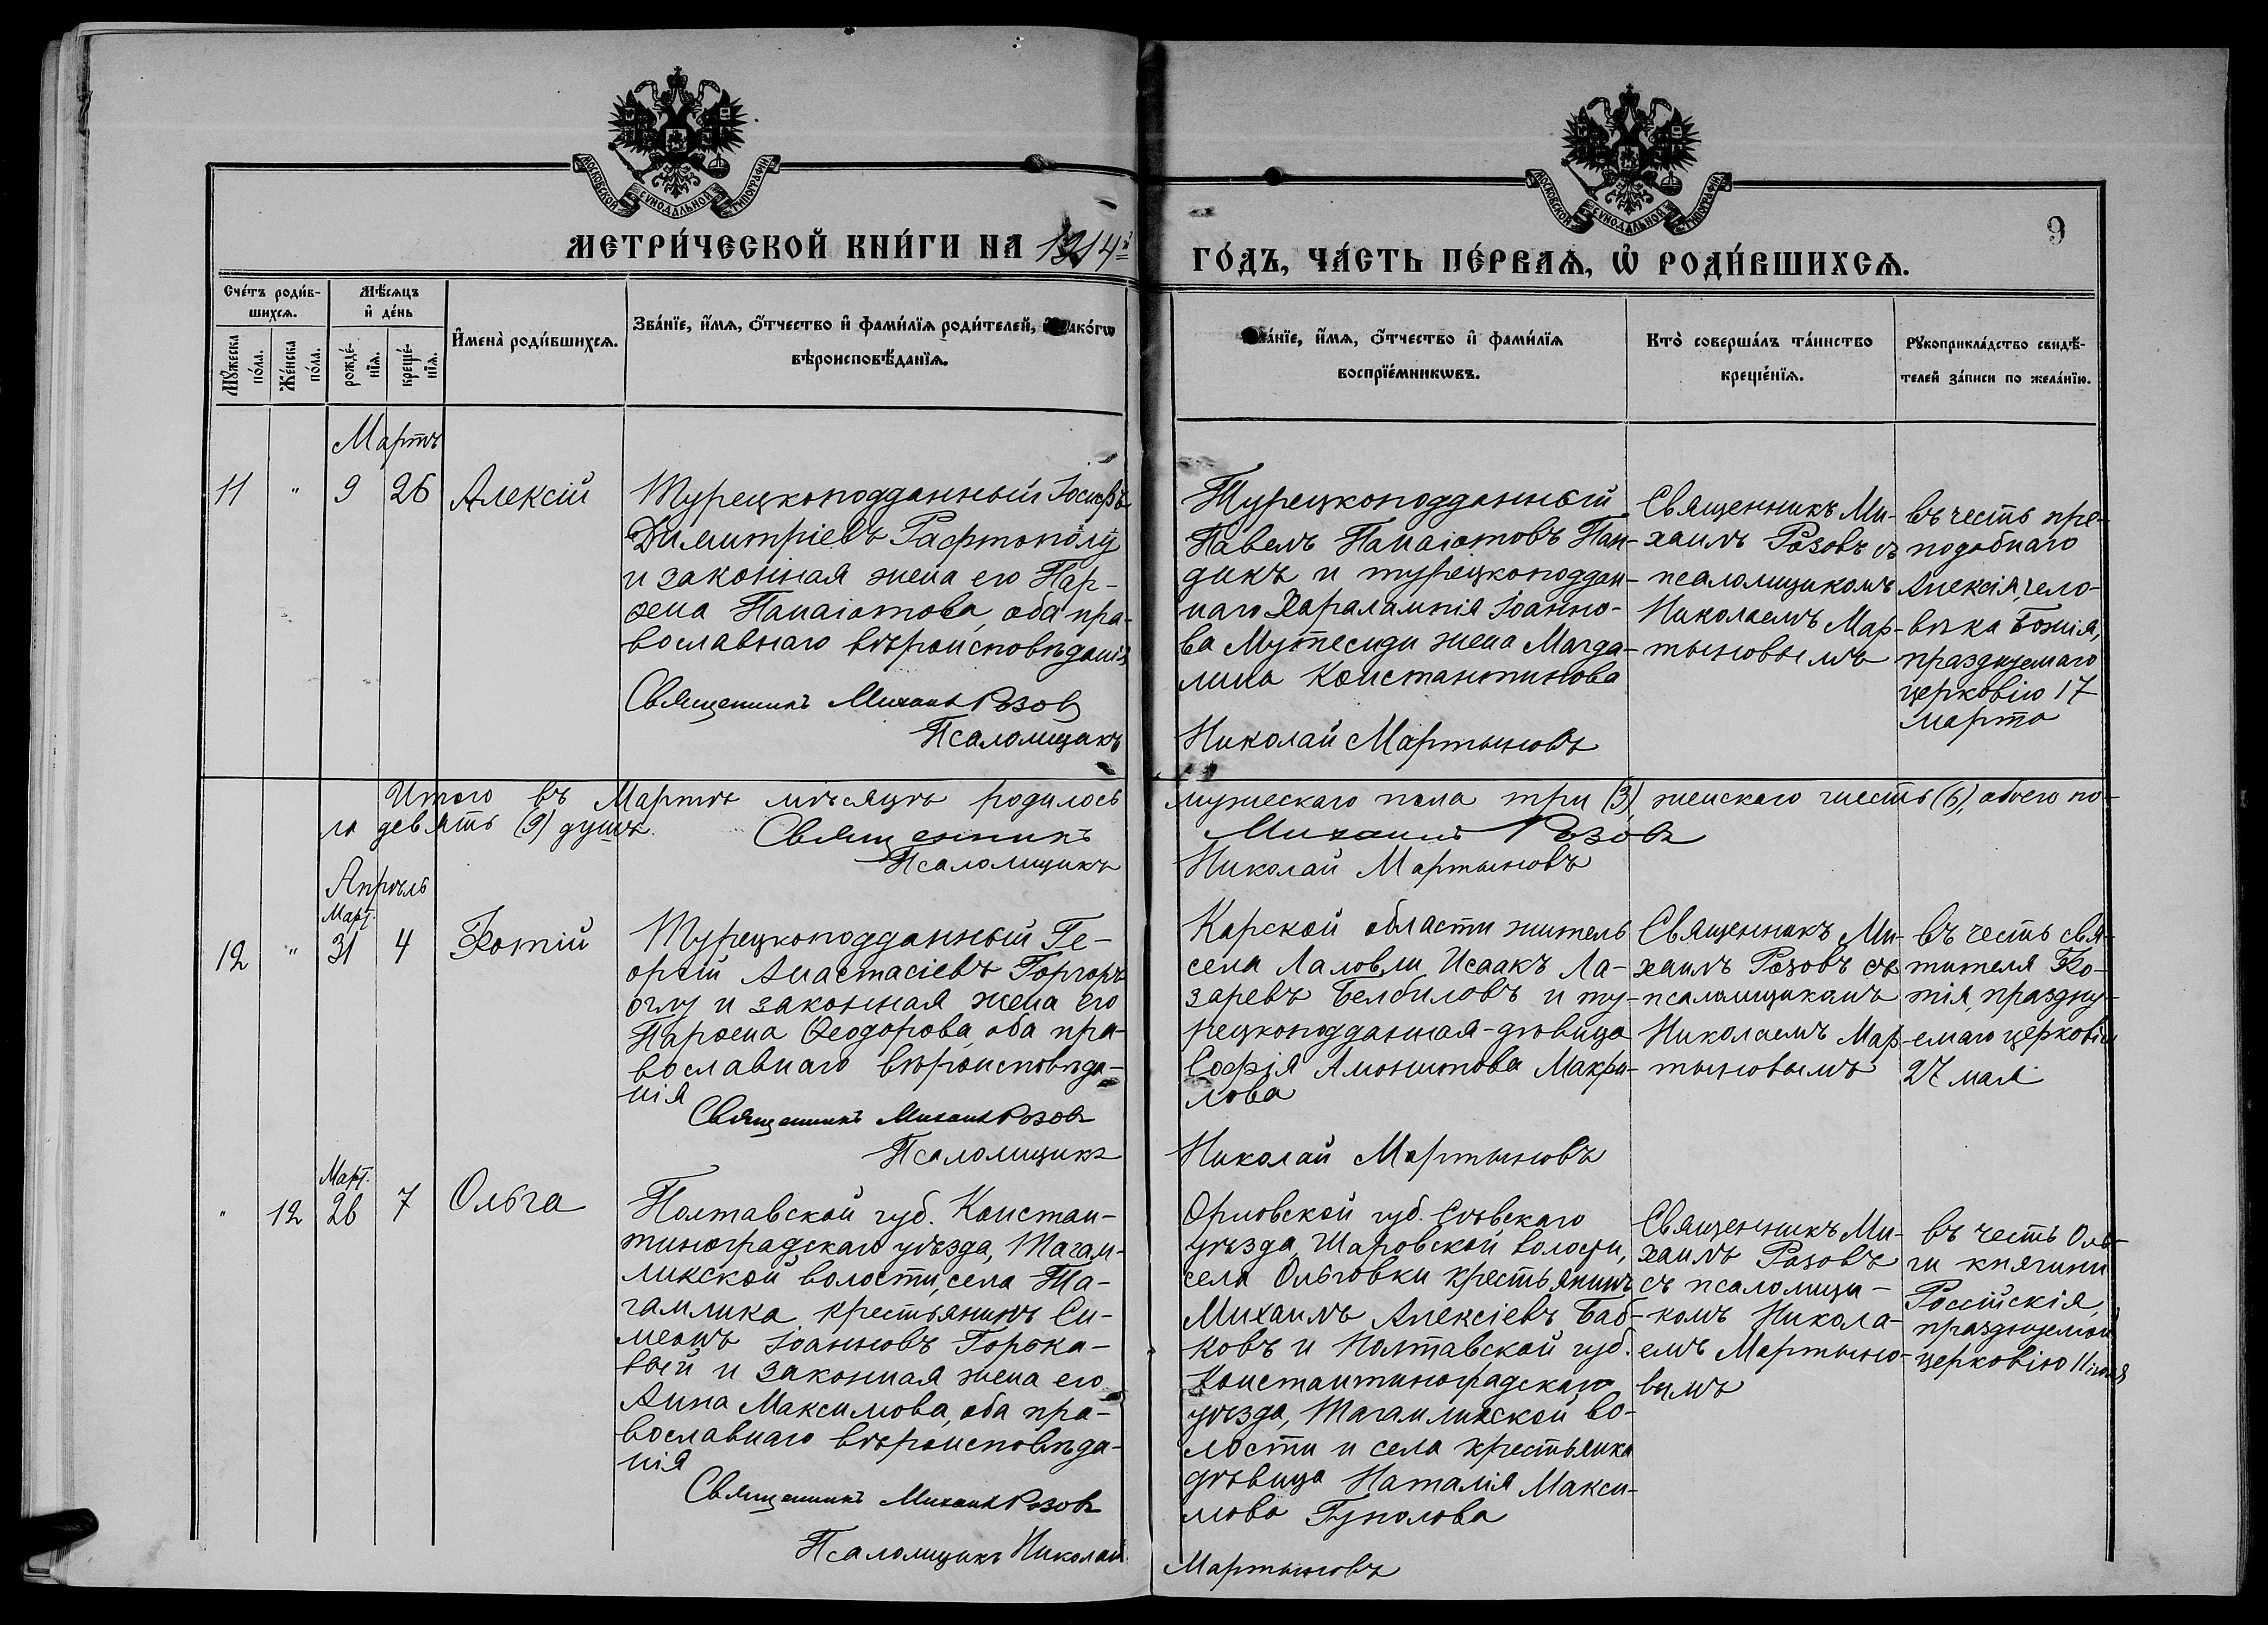 МОСКОВСКОЙ СѴНОДАЛЬНОЙ ТИПОГРАФІИ
МОСКОВСКОЙ СѴНОДАЛЬНОЙ ТИПОГРАФІИ
9
МЕТРИ́ЧЕСКОЙ КНИ́ГИ НА 1914й
ГО́ДЪ, ЧА́СТЬ ПЕ́РВАѦ, Ѡ҆ РОДИ́ВШИХСѦ.
Сче́тъ роди́в-
шихсѧ.
Мꙋ́жеска
по́ла.
Же́нска
по́ла.
Мѣ́сѧцъ
и҆ де́нь
рожде́-
нїѧ.
креще́-
нїѧ.
И҆мена̀ роди́вшихсѧ.
Зва́нїе, и҆́мѧ, ѻ҆́тчество и҆ фами́лїѧ роди́телей, и҆ како́гѡ
вѣроисповѣ́данїѧ.
Зва́нїе, и҆́мѧ, ѻ҆́тчество и҆ фами́лїѧ
воспрїе́мникѡвъ.
Кто̀ соверша́лъ та́инство
креще́нїѧ.
Рꙋкоприкла́дство свидѣ́-
телей за́писи по жела́нїю.
Мартъ
11 " 9 26 Алексій
Турецкоподданный Іосифъ
Димитріевъ Рафтополу
и законная жена его Пар-
ѳена Панаіотова, оба пра-
вославнаго вѣроисповѣданія
Священникъ Михаилъ Розовъ
Псаломщикъ
Турецкоподданный
Павелъ Панаіотовъ Пан-
дикъ и турецкоподдан-
наго Харалампія Іоанно-
ва Мутесиди жена Магда-
лина Константинова
Николай Мартыновъ
Священникъ Ми-
хаилъ Розовъ съ
псаломщикомъ
Николаемъ Мар-
тыновымъ
въ честь пре-
подобнаго
Алексія, чело-
вѣка Божія,
празднуемаго
церковію 17
марта
Итого въ Мартѣ мѣсяцѣ родилось мужескаго пола три (3), женскаго шесть (6), обоего по-
ла девять (9) душъ.
Священникъ Михаилъ Розовъ
Псаломщикъ Николай Мартыновъ
Апрѣль
Март.
12 " 31 4 Фотій
Турецкоподданный Ге-
оргій Анастасіевъ Горгоръ
оглу и законная жена его
Парѳена Ѳеодорова, оба пра-
вославнаго вѣроисповѣда-
нія
Священникъ Михаилъ Розовъ
Псаломщикъ
Карской области житель
села Лаловли Исаакъ Ла-
заревъ Белбиловъ и ту-
рецкоподданная-дѣвица
Софія Амонитова Макри-
лова
Николай Мартыновъ
Священникъ Ми-
хаилъ Розовъ съ
псаломщикомъ
Николаемъ Мар-
тыновымъ
въ честь свя-
тителя Фо-
тія, праздну-
емаго церковію
27 мая
Март.
" 12 26 7 Ольга
Полтавской губ. Констан-
тиноградскаго уѣзда, Тагам-
ликской волости, села Та-
гамлика крестьянинъ Си-
меонъ Іоанновъ Горька-
вый и законная жена его
Анна Максимова, оба пра-
вославнаго вѣроисповѣда-
нія
Священникъ Михаилъ Розовъ
Псаломщикъ Николай
Орловской губ. Сѣвскаго
уѣзда, Шаровской волости,
села Ольговки крестьянинъ
Михаилъ Алексіевъ Баб-
ковъ и Полтавской губ.
Константиноградскаго
уѣзда, Тагамликской во-
лости и села крестьянка
дѣвица Наталія Макси-
мова Гуполова
Мартыновъ
Священникъ Ми-
хаилъ Розовъ
съ псаломщи-
комъ Никола-
емъ Мартыно-
вымъ
въ честь Оль-
ги княгини
Россійскія,
празднуемой
церковію 11 іюля